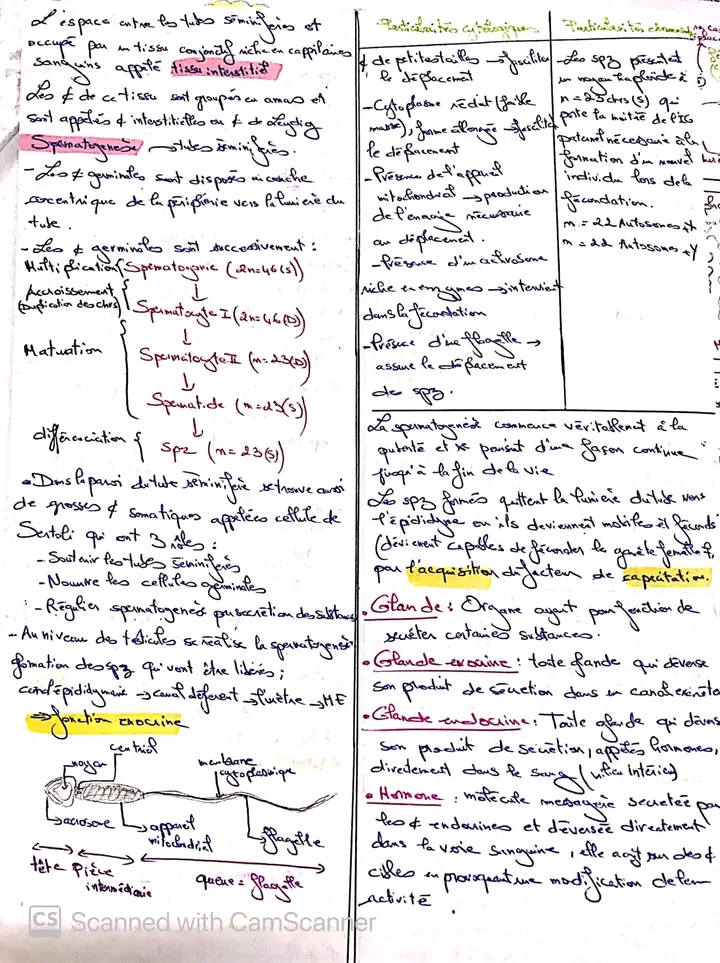 L'espace entre les tubes séminifères et
occupé par un tissu conjonctif riche en cappilaires
sanguins appelé tissu interstitiel
Les ¢ de ce tissu sont groupés en amas et
sont appelés ¢ interstitielles ou ¢ de Leydig
Spermatogenèse → tubes séminifères.
- Les ¢ germinales sont disposés en couche
concentrique de la périphérie vers la lumière du
tube.
- Les ¢ germinales sont successivement :
Multiplication { Spermatogonie (2n=46(s))
↓
Accroissement
(Duplication des chrs) { Spermatocyte I (2n=46(D))
↓
Maturation { Spermatocyte II (n=23(D))
↓
Spermatide (n=23(s))
↓
différenciation { Spz (n=23(s))
• Dans la paroi du tube séminifère se trouve aussi
de grosses ¢ somatiques appelées cellule de
Sertoli qui ont 3 rôles :
- Soutenir les tubes séminifères
- Nourrir les cellules germinales
- Régulier spermatogenèse par secrétion des substances
- Au niveau des testicules se réalise la spermatogenèse
formation des spz qui vont être libérés ;
canal épididymaire → canal déferent → l'urètre → ME
⇒ fonction exocrine
centriol
noyau
membrane
cytoplasmique
acrosome
appareil
mitochondrial
flagelle
tête
Pièce
intermédiaire
queue = flagelle
Particularités cytologiques
¢ de petites tailles → faciliter
le déplacement
- Cytoplasme réduit (faible
masse), forme allongée → facilité
le déplacement
- Présence de l'appareil
mitochondrial → production
de l'énergie nécessaire
au déplacement.
- Présence d'un acrosome
riche en enzymes → intervient
dans la fécondation
- Présence d'une flagelle →
assure le déplacement
de spz.
Particularités
- Les spz présentent
un noyau haploïde à
n = 23 chrs (s) qui
porte la moitié de l'IG
paternel nécessaire à la
formation d'un nouvel
individu lors de la
fécondation.
n = 22 Autosomes +
n = 22 Autosomes + Y
La spermatogenèse commence véritablement à la
puberté et se poursuit d'une façon continue
jusqu'à la fin de la vie
Les spz formés quittent la lumière du tube vers
l'épididyme où ils deviennent mobiles et féconds
(deviennent capables de féconder le gamète femelle),
par l'acquisition du facteur de capacitation.
• Glande : Organe ayant pour fonction de
secréter certaines substances.
• Glande exocrine : toute glande qui déverse
son produit de sécrétion dans un canal
• Glande endocrine : Toute glande qui déverse
son produit de sécrétion, appelés hormones,
directement dans le sang (milieu intérieur)
• Hormone : molécule messagère secretée par
les ¢ endocrines et déversée directement
dans la voie sanguine, elle agit sur des ¢
cibles en provoquant une modification de leur
activité
CS Scanned with CamScanner